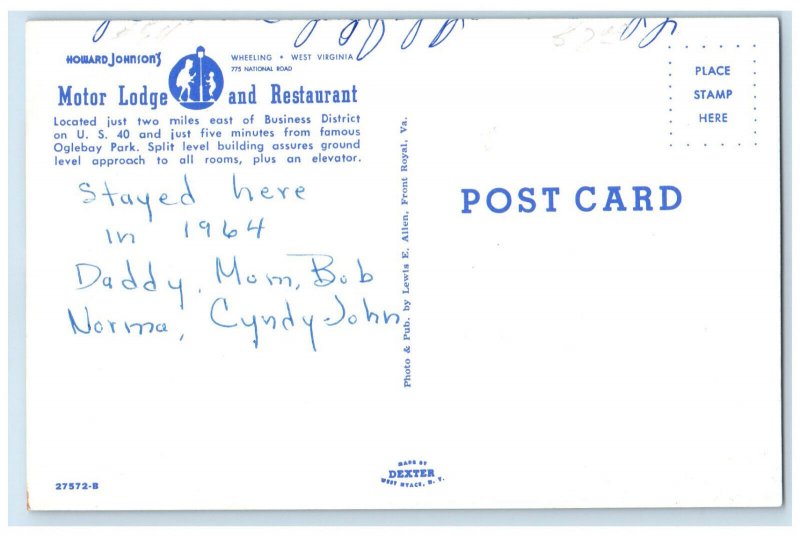 HOWARD JOHNSON'S
WHEELING • WEST VIRGINIA
775 NATIONAL ROAD
Motor Lodge and Restaurant
Located just two miles east of Business District
on U. S. 40 and just five minutes from famous
Oglebay Park. Split level building assures ground
level approach to all rooms, plus an elevator.
Stayed here
in 1964
Daddy, Mom, Bob
Norma, Cyndy-John
Photo & Pub. by Lewis E. Allen, Front Royal, Va.
PLACE
STAMP
HERE
POST CARD
MADE BY
DEXTER
WEST NYACK, N. Y.
27572-B